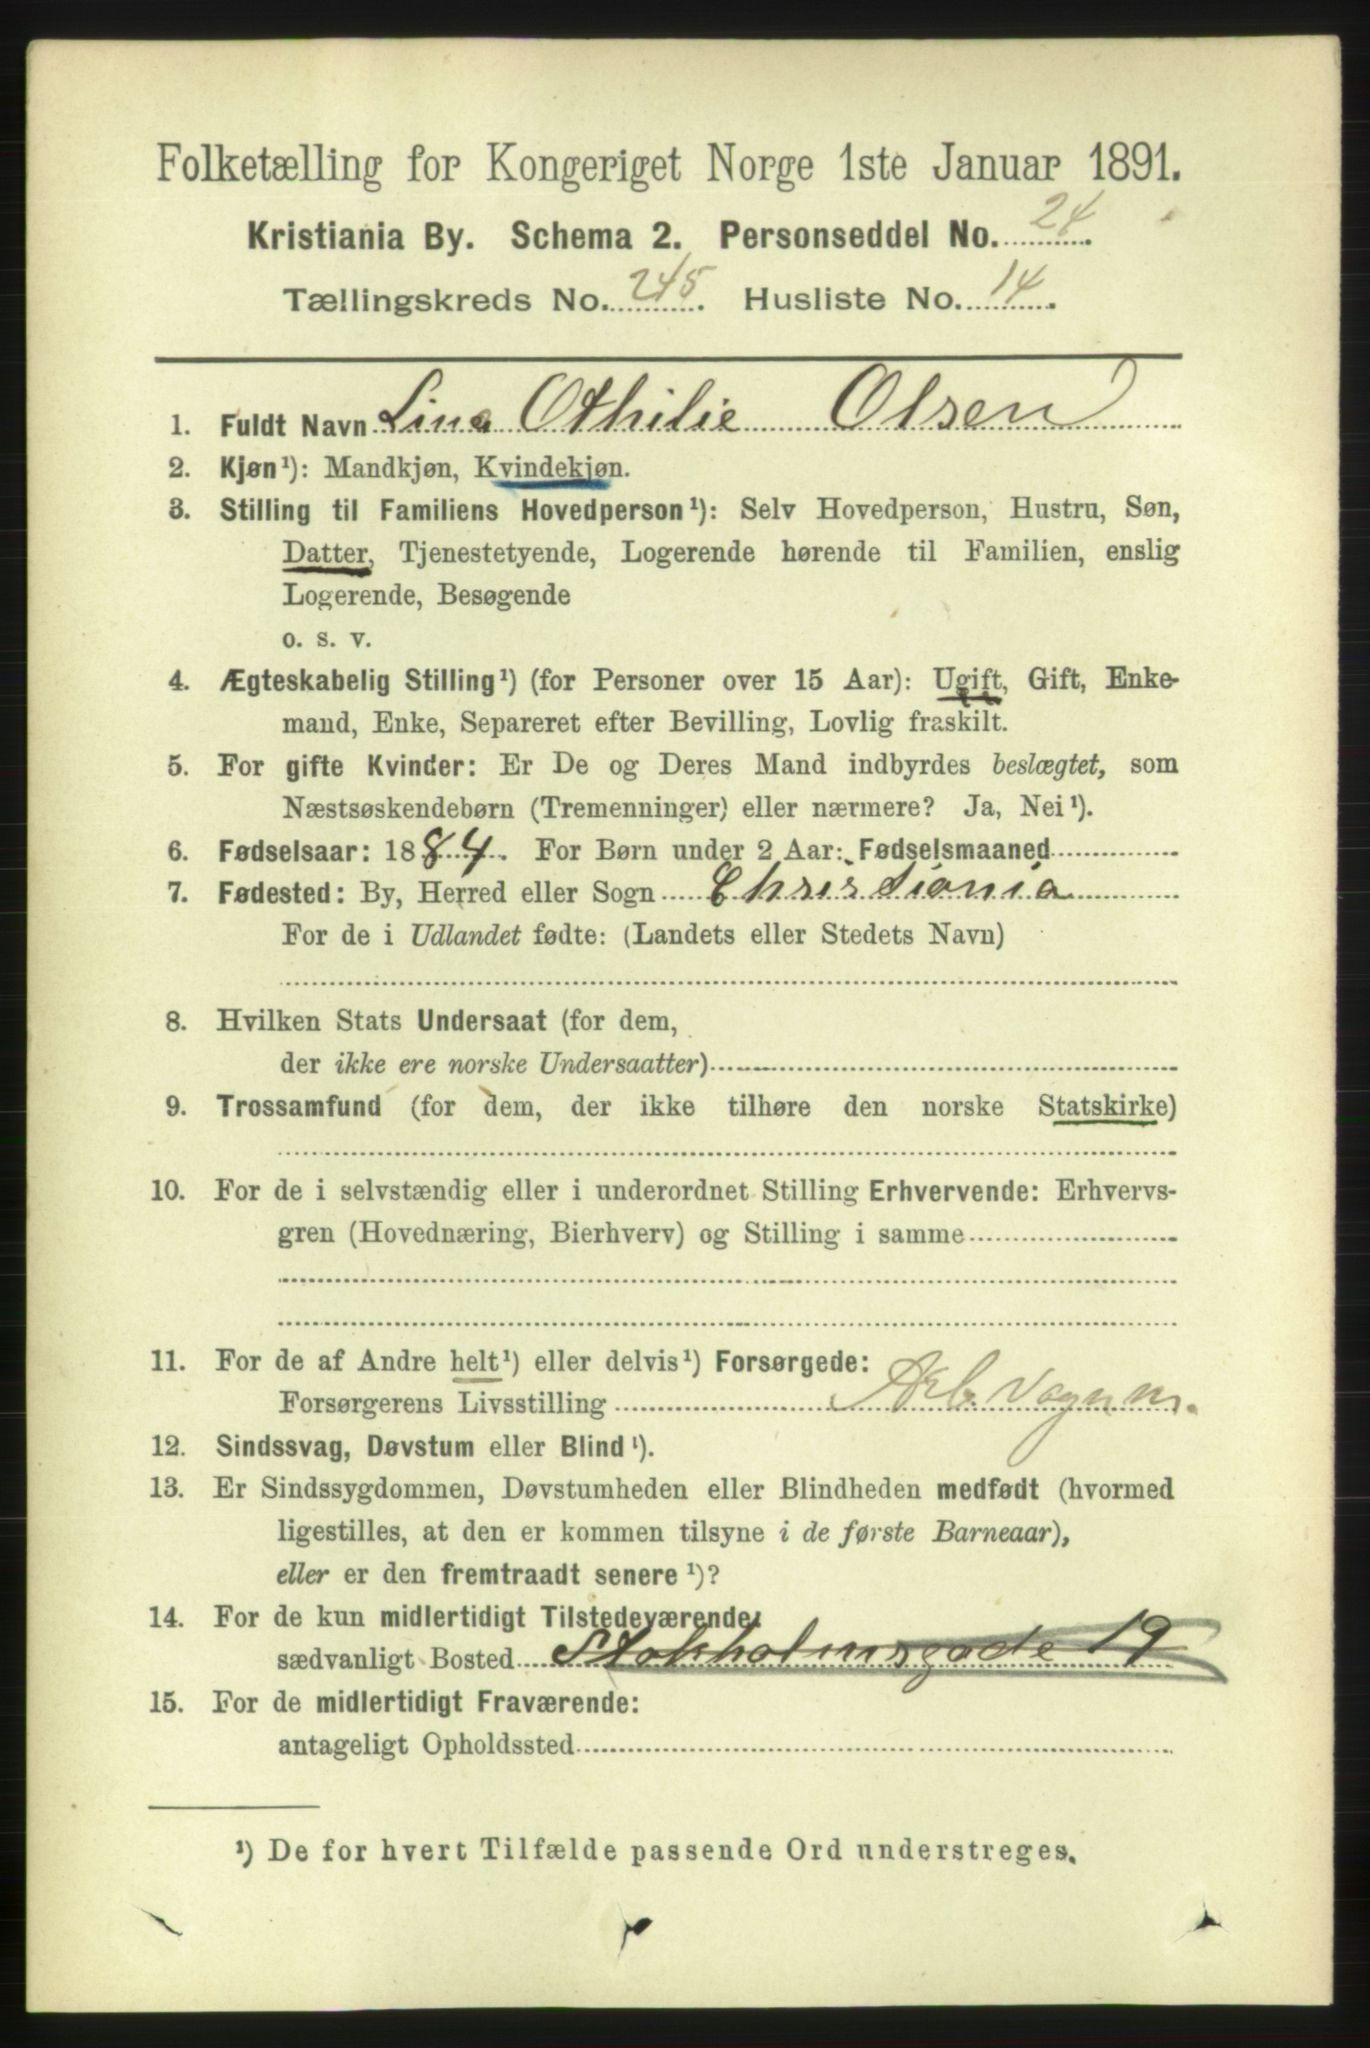 Folketælling for Kongeriget Norge 1ste Januar 1891.
Kristiania By. Schema 2. Personseddel No. 24.
Tællingskreds No. 245. Husliste No. 14.
1. Fuldt Navn Lina Othilie Olsen
2. Kjøn¹): Mandkjøn, Kvindekjøn.
3. Stilling til Familiens Hovedperson¹): Selv Hovedperson, Hustru, Søn,
Datter, Tjenestetyende, Logerende hørende til Familien, enslig
Logerende, Besøgende
o. s. v.
4. Ægteskabelig Stilling¹) (for Personer over 15 Aar): Ugift, Gift, Enke-
mand, Enke, Separeret efter Bevilling, Lovlig fraskilt.
5. For gifte Kvinder: Er De og Deres Mand indbyrdes beslægtet, som
Næstsøskendebørn (Tremenninger) eller nærmere? Ja, Nei¹).
6. Fødselsaar: 1884. For Børn under 2 Aar: Fødselsmaaned
7. Fødested: By, Herred eller Sogn Christiania
For de i Udlandet fødte: (Landets eller Stedets Navn)
8. Hvilken Stats Undersaat (for dem,
der ikke ere norske Undersaatter)
9. Trossamfund (for dem, der ikke tilhøre den norske Statskirke)
10. For de i selvstændig eller i underordnet Stilling Erhvervende: Erhvervs-
gren (Hovednæring, Bierhverv) og Stilling i samme
11. For de af Andre helt¹) eller delvis¹) Forsørgede:
Forsørgerens Livsstilling Arb. Vognm.
12. Sindssvag, Døvstum eller Blind¹).
13. Er Sindssygdommen, Døvstumheden eller Blindheden medfødt (hvormed
ligestilles, at den er kommen tilsyne i de første Barneaar),
eller er den fremtraadt senere¹)?
14. For de kun midlertidigt Tilstedeværende:
sædvanligt Bosted Stokholmsgade 19
15. For de midlertidigt Fraværende:
antageligt Opholdssted
¹) De for hvert Tilfælde passende Ord understreges.